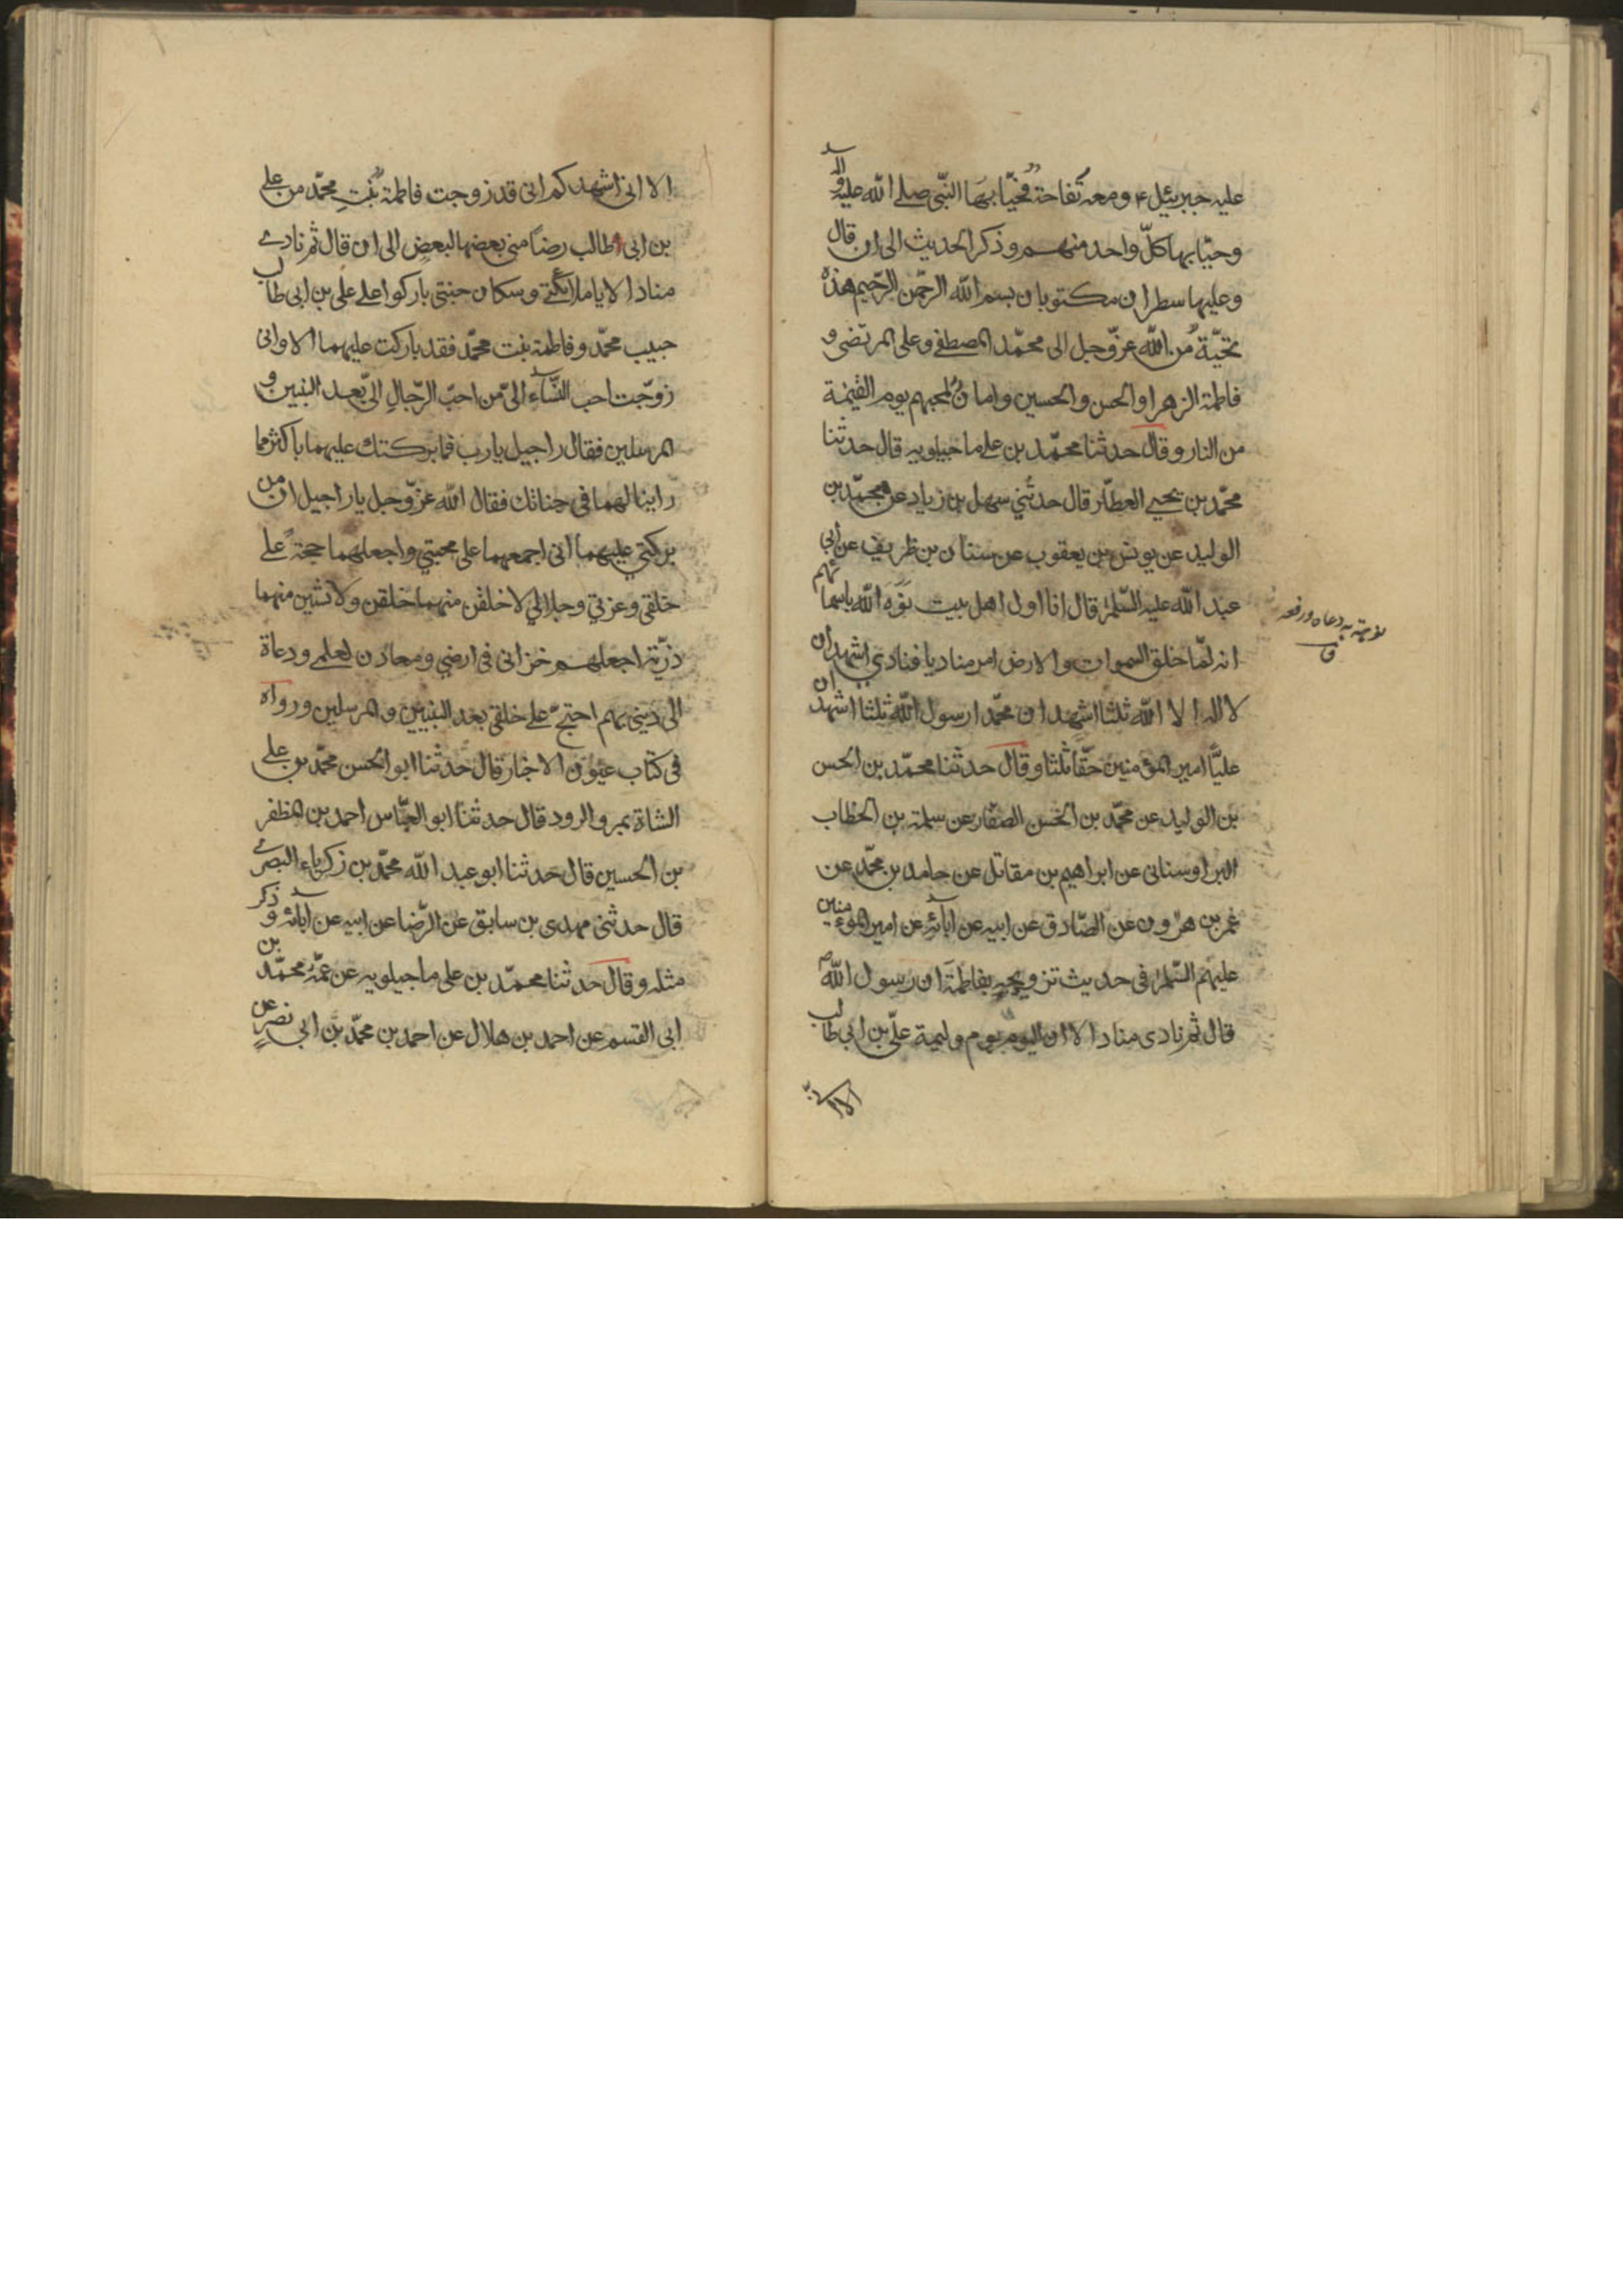 عليه جبرئيل ع ومعه تفاحة فحيّا بها النّبي صلى الله عليه واله
وحيّا بها كلّ واحد منهم وذكر الحديث الى ان قال
وعليها سطران مكتوبان بسم الله الرحمن الرّحيم هذه
تحيّة من الله عزّ وجل الى محمّد المصطفى وعلى المرتضى و
فاطمة الزهرا والحسن والحسين وامان لمحبهم يوم القيمة
من النار وقال حدثنا محمّد بن على ماجيلويه قال حدثنا
محمّد بن يحيى العطّار قال حدثني سهل بن زياد عن محمّد بن
الوليد عن يونس بن يعقوب عن سنان بن ظريف عن ابي
عبد الله عليه السّلم قال انا اول اهل بيت نوّه الله باسمائهم
انه لمّا خلق السموات والارض امر مناديا فنادي اشهد ان
لا اله الا الله ثلثا اشهد ان محمّدا رسول الله ثلثا اشهد ان
عليّا امير المؤمنين حقّا ثلثا وقال حدثنا محمّد بن الحسن
بن الوليد عن محمّد بن الحسن الصفّار عن سلمة بن الخطاب
البراوستانى عن ابراهيم بن مقاتل عن حامد بن محمّد عن
عمر بن هرون عن الصّادق عن ابيه عن آبائه عن امير المؤمنين
عليهم السّلم فى حديث تزويجه بفاطمة ان رسول الله ص
قال ثم نادى مناد الا ان اليوم يوم وليمة علىّ بن ابى طالب
نوهته به دعاه ورفعه
ق
الا انى
الا انى اشهدكم انى قد زوجت فاطمة بنت محمّد من على
بن ابى طالب رضا منى بعضها لبعض الى ان قال ثم نادى
مناد الا يا ملائكتى وسكان جنتى باركوا على على بن ابى طالب
حبيب محمّد وفاطمة بنت محمّد فقد باركت عليهما الا وانى
زوّجت احب النّساء الىّ من احبّ الرّجال الىّ بعد النبيين و
المرسلين فقال راجيل يا رب فما بركتك عليهما باكثر مما
راينا لهما فى جنانك فقال الله عزّ وجل يا راجيل ان من
بركتي عليهما انى اجمعهما على محبتي واجعلهما حجة على
خلقى وعزتي وجلالي لاخلقن منهما خلقن ولانشين منهما
ذرّية اجعلهم خزانى فى ارضي ومعادن لعلمى ودعاة
الى ديني بهم احتجّ على خلقى بعد النبيين والمرسلين ورواه
فى كتاب عيون الاخبار قال حدثنا ابو الحسن محمّد بن على
الشاة بمرو الرود قال حدثنا ابو العبّاس احمد بن المظفر
بن الحسين قال حدثنا ابو عبد الله محمّد بن زكرياء البصرى
قال حدثنى مهدى بن سابق عن الرّضا عن ابيه عن آبائه وذكر
مثله وقال حدثنا محمّد بن على ماجيلويه عن عمّه محمّد بن
ابى القسم عن احمد بن هلال عن احمد بن محمّد بن ابى نصر عن